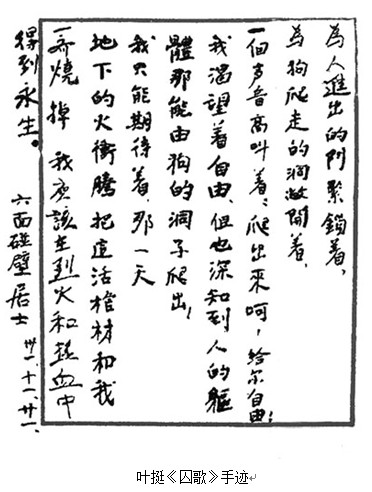 為人進出的門緊鎖着，
為狗爬走的洞敞開着，
一個声音高叫着：爬出來呵，給尔自由！
我渴望着自由，但也深知到人的軀
體那能由狗的洞子爬出！
我只能期待着，那一天
地下的火衝騰把這活棺材和我
一齐燒掉 我应該在烈火和热血中
得到永生。
六面碰壁居士
卅一．十一．廿一．
叶挺《囚歌》手迹